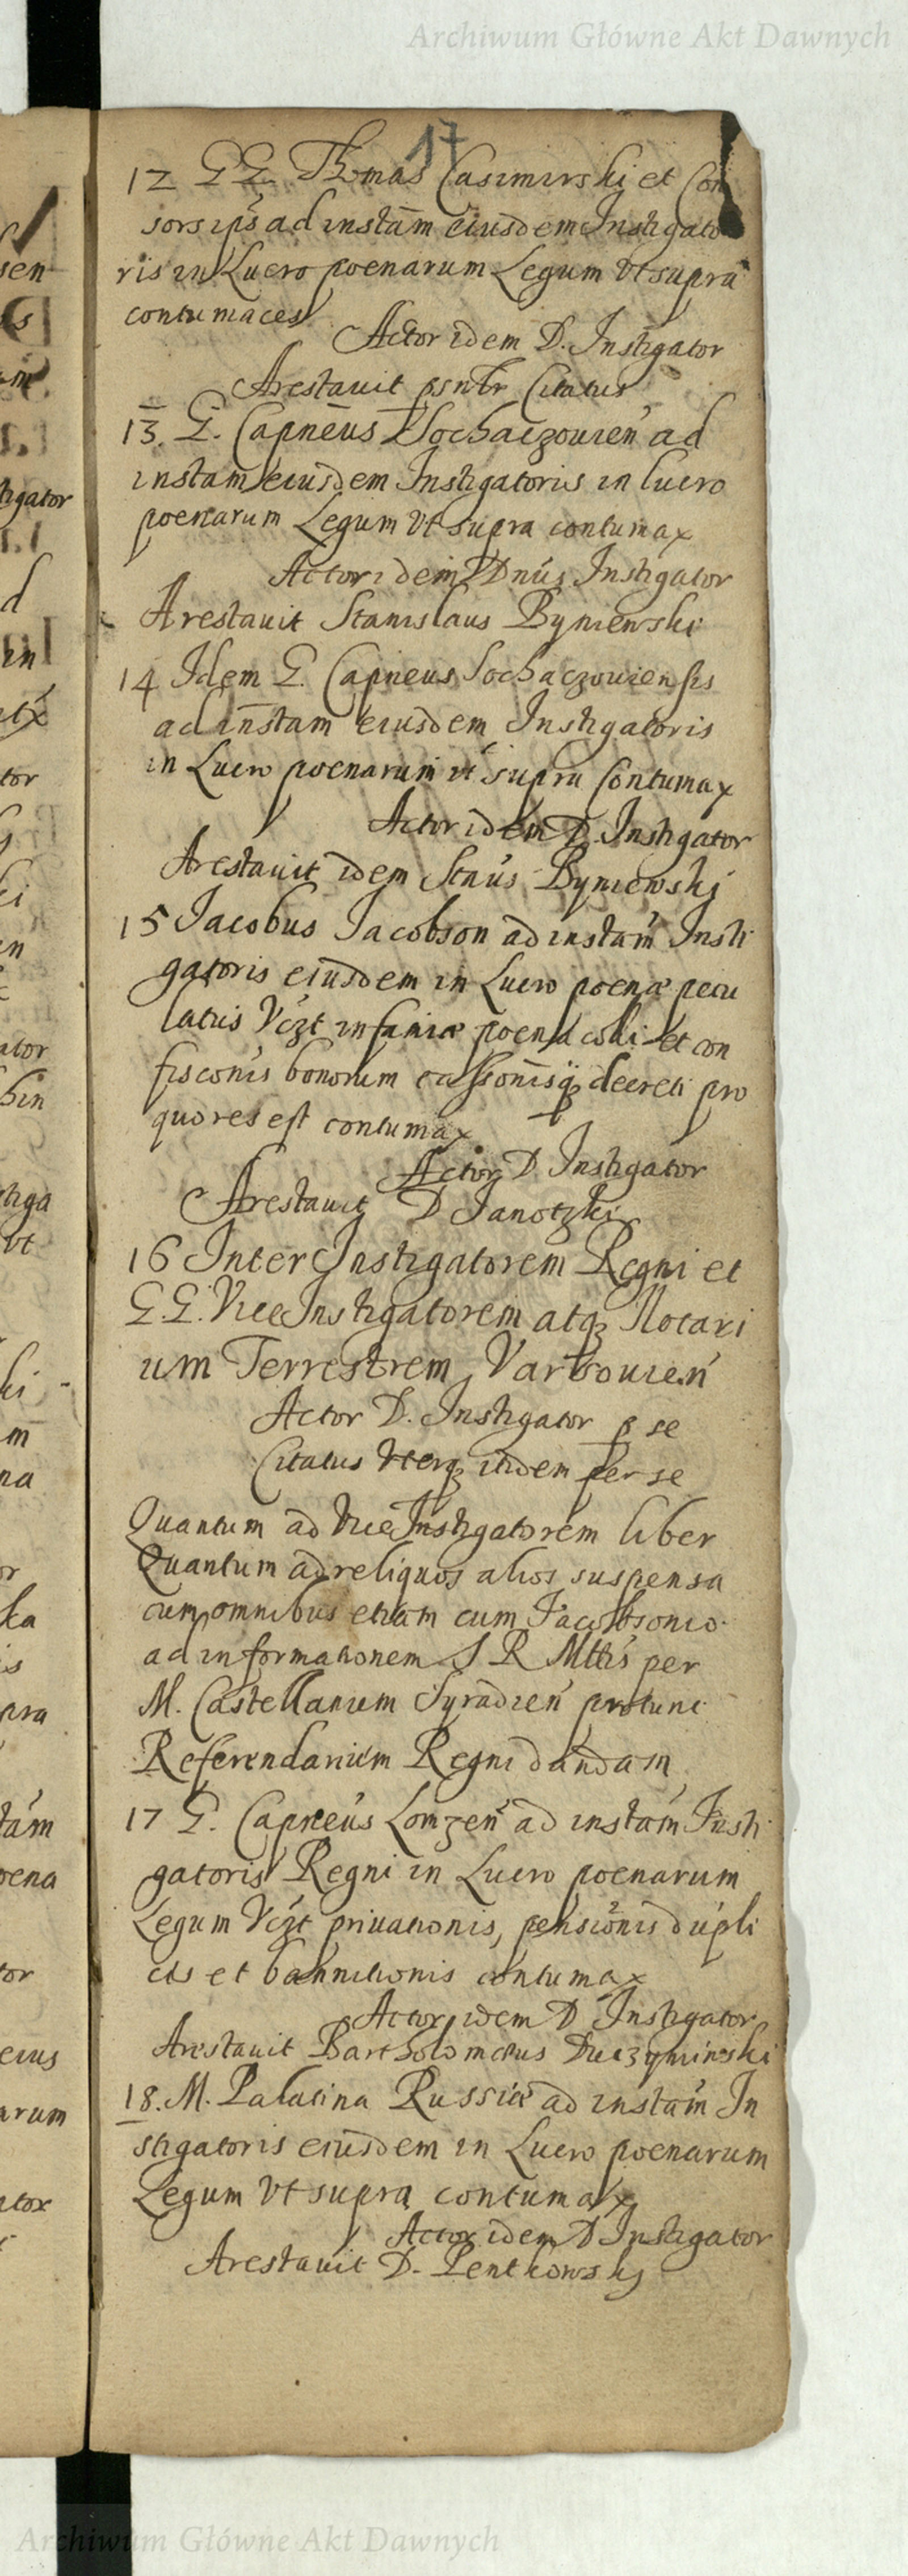 Archiwum Główne Akt Dawnych
17
12 G G. Thomas Casimirski et Con
sors ips ad instam eiusdem Instigato
ris in Lucro poenarum Legum Vt supra
contumaces
Actor idem D. Instigator
Arestauit psntr Citatus
13. G. Capneus Sochaczouien ad
instam eiusdem Instigatoris in lucro
poenarum Legum Vt supra contumax
Actor idem Dnus Instigator
Arestauit Stanislaus Byniewski
14 Idem G. Capneus Sochaczouiensis
ad instam eiusdem Instigatoris
in Lucro poenarum vt supra Contumax
Actor idem D. Instigator
Arestauit idem Stnus Byniewskj
15 Jacobus Jacobson ad instam Insti
gatoris eiusdem in Lucro poenæ pecu
latus Vizt infamiæ poena colli et con
fisconis bonorum cassonisq decreti pro
quo res est contumax
Actor D Instigator
Arestauit D Janotzki
16 Inter Instigatorem Regni et
G. G. ViceInstigatorem atq Notari
um Terrestrem Varsouien
Actor D. Instigator p se
Citatus Vterq itidem per se
Quantum ad ViceInstigatorem liber
Quantum ad reliquos alios suspensa
cum omnibus etiam cum Jacobsonio
ad informationem S R Mttis per
M. Castellanum Syradien protunc
Referendarium Regni dandam
17 G. Capneus Lomzen ad instam Insti
gatoris Regni in Lucro poenarum
Legum Vizt priuationis, pensionis dupli
cis et bannitionis contumax
Actor idem D Instigator
Arestauit Bartholomæus
18. M. Palatina Russiæ ad instam In
stigatoris eiusdem in Lucro poenarum
Legum Vt supra contumax
Actor idem D Instigator
Arestauit D. Penthowskj
Archiwum Główne Akt Dawnych